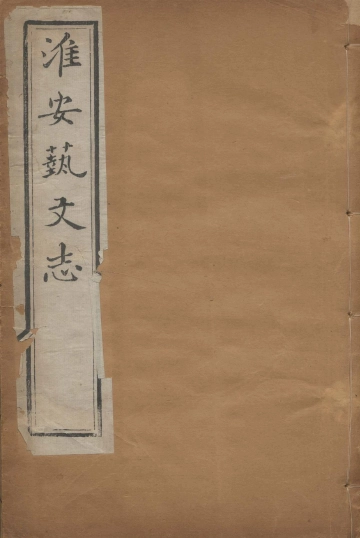 淮安藝文志